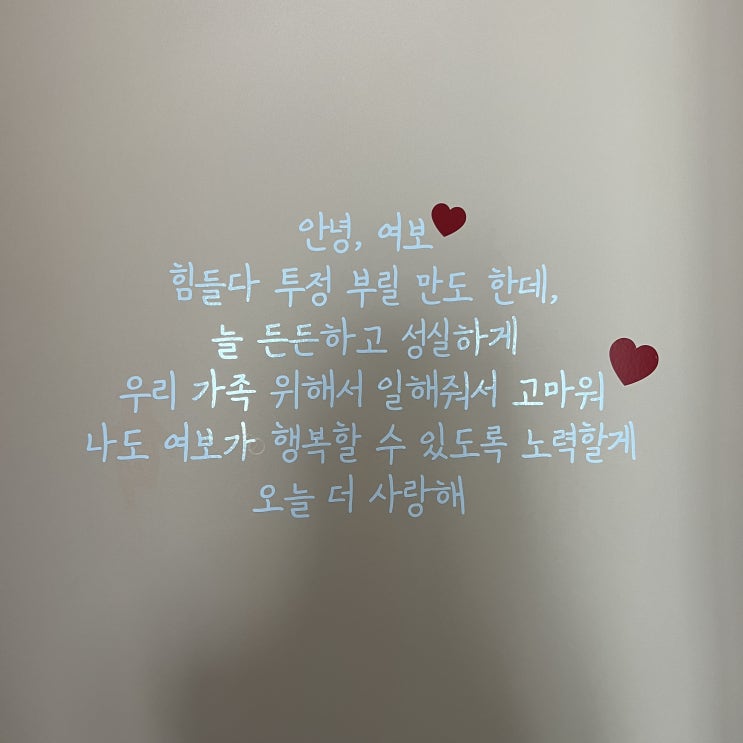 안녕, 여보
힘들다 투정 부릴 만도 한데,
늘 든든하고 성실하게
우리 가족 위해서 일해줘서 고마워
나도 여보가 행복할 수 있도록 노력할게
오늘 더 사랑해